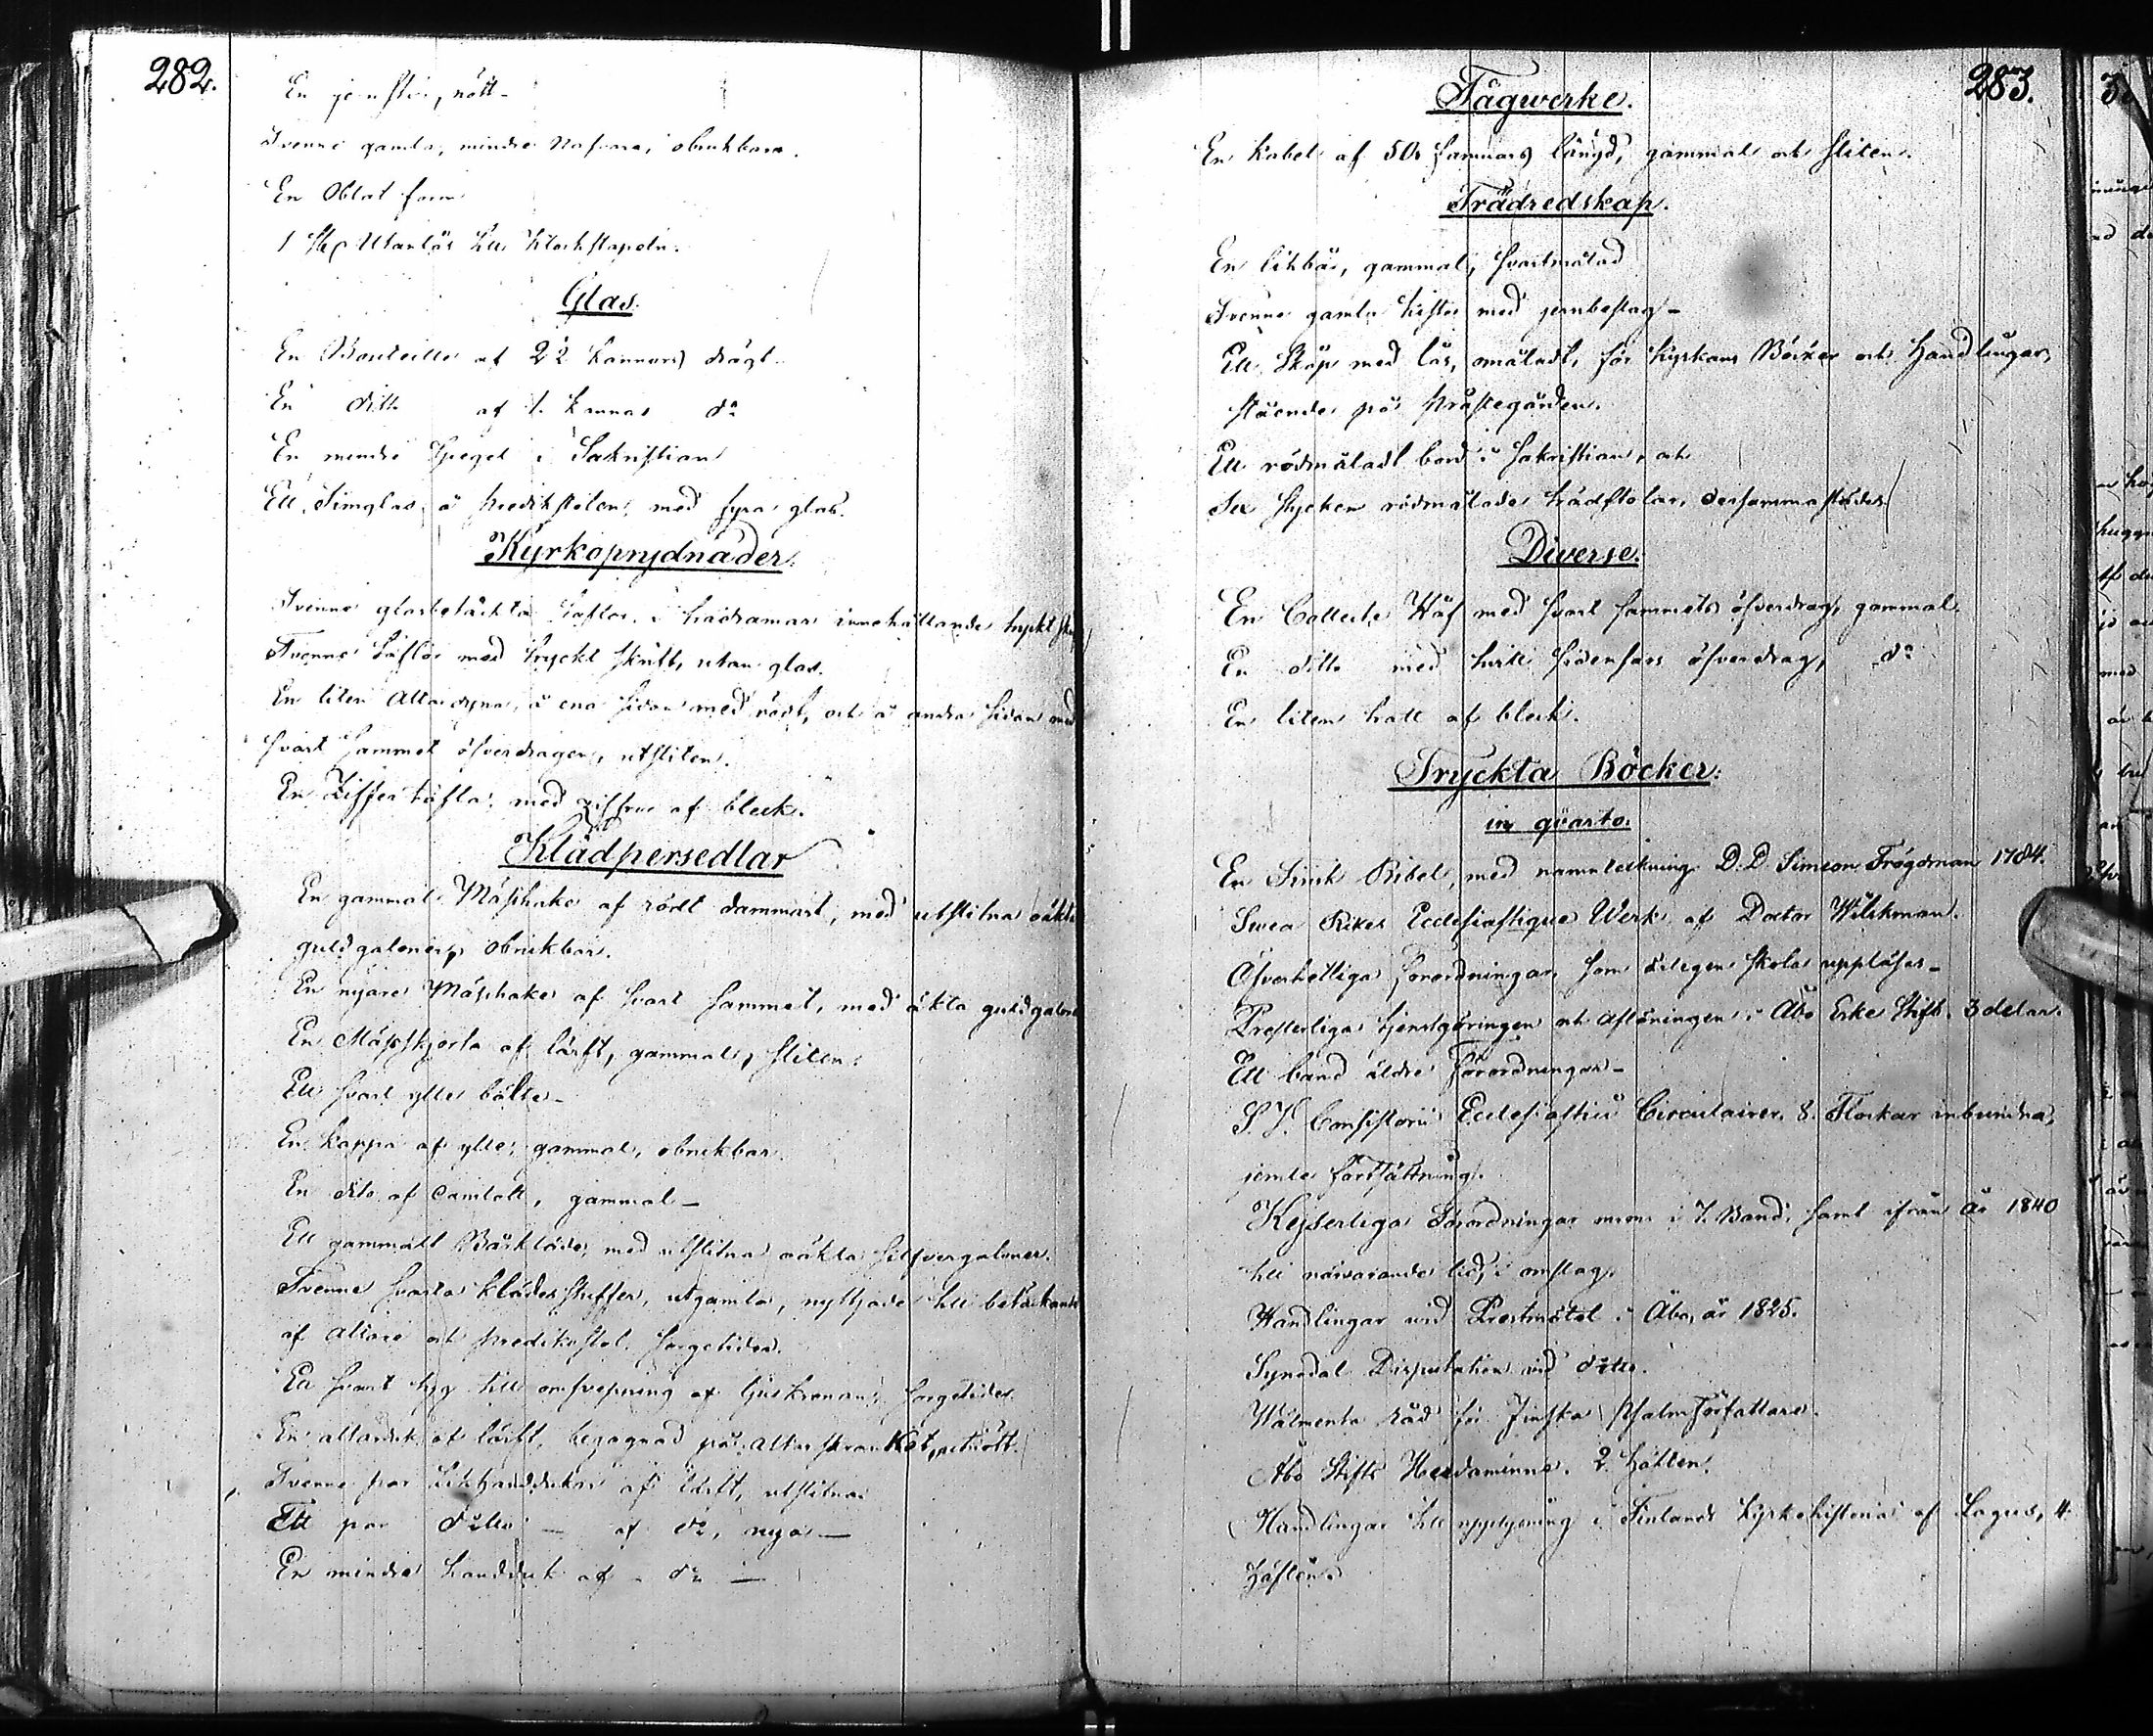 282.
En jernstör, nött -
Tvenne gamla, mindre Nafvare, obrukbara.
En Oblat form
1 st. Utanlås till Klockstapeln.
Glas.
En Bouteille af 2 1/2 kannors drägt
En ditto af 1. kannas do
En mindre Spegel i Sakristian
Ett Timglas å Predikstolen, med fyra glas.
Kyrkoprydnader.
Tvenne glasbetäckta Taflor i trädramar innehållande tryckt
Tvenne Taflor med tryckt skrift, utan glas.
En liten Altardyna, å ena sidan med rödt, och å andra sidan med
svart Sammet öfverdragen, utsliten.
En Ziffertafla, med ziffror af bleck.
Klädpersedlar
En gammal Mässhake af rödt dammast, med utslitna oäkta
guldgaloner, obrukbar.
En nyare Mässhake af svart sammet, med äkta guldgaloner
En Mässkjorta af lärft, gammal, sliten.
Ett svart ylle bälte -
En kappa af ylle, gammal, obrukbar.
En dito af Camlott, gammal -
Ett gammalt Bårkläde, med utslitna oäkta silfvergaloner.
Tvenne svarta klädesstuffer, utgamla, nyttjade till betäckande
af altare och predikostol sorgetider.
Ett svart tyg till omsvepning af ljuskronan, sorgetider
En altarduk af lärft, begagnad på Altarskranket, utnött.
Tvenne par Likhanddukar af lärft, utslitna
Ett par ditto - af do, nya -
En mindre handduk af - do -
283.
Tågwerke.
En Kabel af 50 famnars längd, gammal och sliten.
Trädredskap.
En likbår, gammal, svartmålad
Tvenne gamla kistor med jernbeslag -
Ett Skåp med lås, omåladt, för kyrkans Böcker och Handlingar,
stående på Prästegården.
Ett rödmåladt bord i sakristian, och
Sex stycken rödmålade trädstolar, dersammastädes
Diverse.
En Collecte Håf med svart sammets öfverdrag, gammal.
En ditto med hvitt sidensars öfverdrag, do
En liten tratt af bleck.
Tryckta Böcker.
in quarto.
En Finsk Bibel, med namnteckning D. D. Simeon Frögdman 1784.
Swea Rikes Ecclesiastique Werk af Doctor Wilskman.
Öfverhetliga förordningar, som årligen skola uppläsas -
Presterliga tjenstgöringen och aflöningen i Åbo Erke Stift. 3 delar.
Ett band äldre Förordningar -
S. V. Consistorii Ecclesiastici Circulairer. 8. Flockar inbundna,
jemte fortsättning.
Kejserliga Förordningar m.m. i 7. Band, samt ifrån År 1840
till närvarande tid, i omslag.
Handlingar vid Prestmötet i Åbo, år 1825.
Synodal Disputation vid ditto.
Wälmenta råd för Finska Psalm Författare.
Åbo Stifts Herdaminne. 2. Häften.
Handlingar till upplysning i Finlands Kyrkohistoria af Lagus, 4.
Häften.